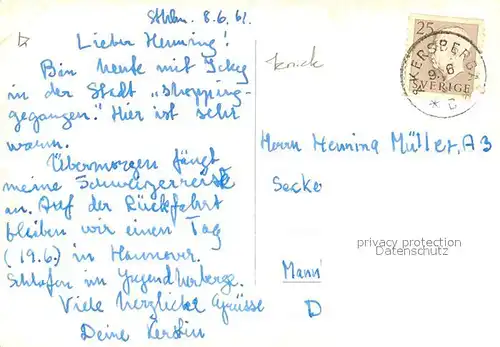 Sthlm. 8.6.61.
Lieber Henning!
Bin heute mit
in der Stadt "shopping-
gegangen." Hier ist sehr
warm.
Übermorgen fängt
meine Schweizerreise
an. Auf der Rückfahrt
bleiben wir einen Tag
(19.6.) in Hannover.
Schlafen in Jugendherberge.
Viele herzliche Grüsse
Deine Kerstin
25
ÅKERSBERGA
9.6
SVERIGE
Herrn Henning Müller, A3
Secke
privacy protection
Datenschutz
Mann
D